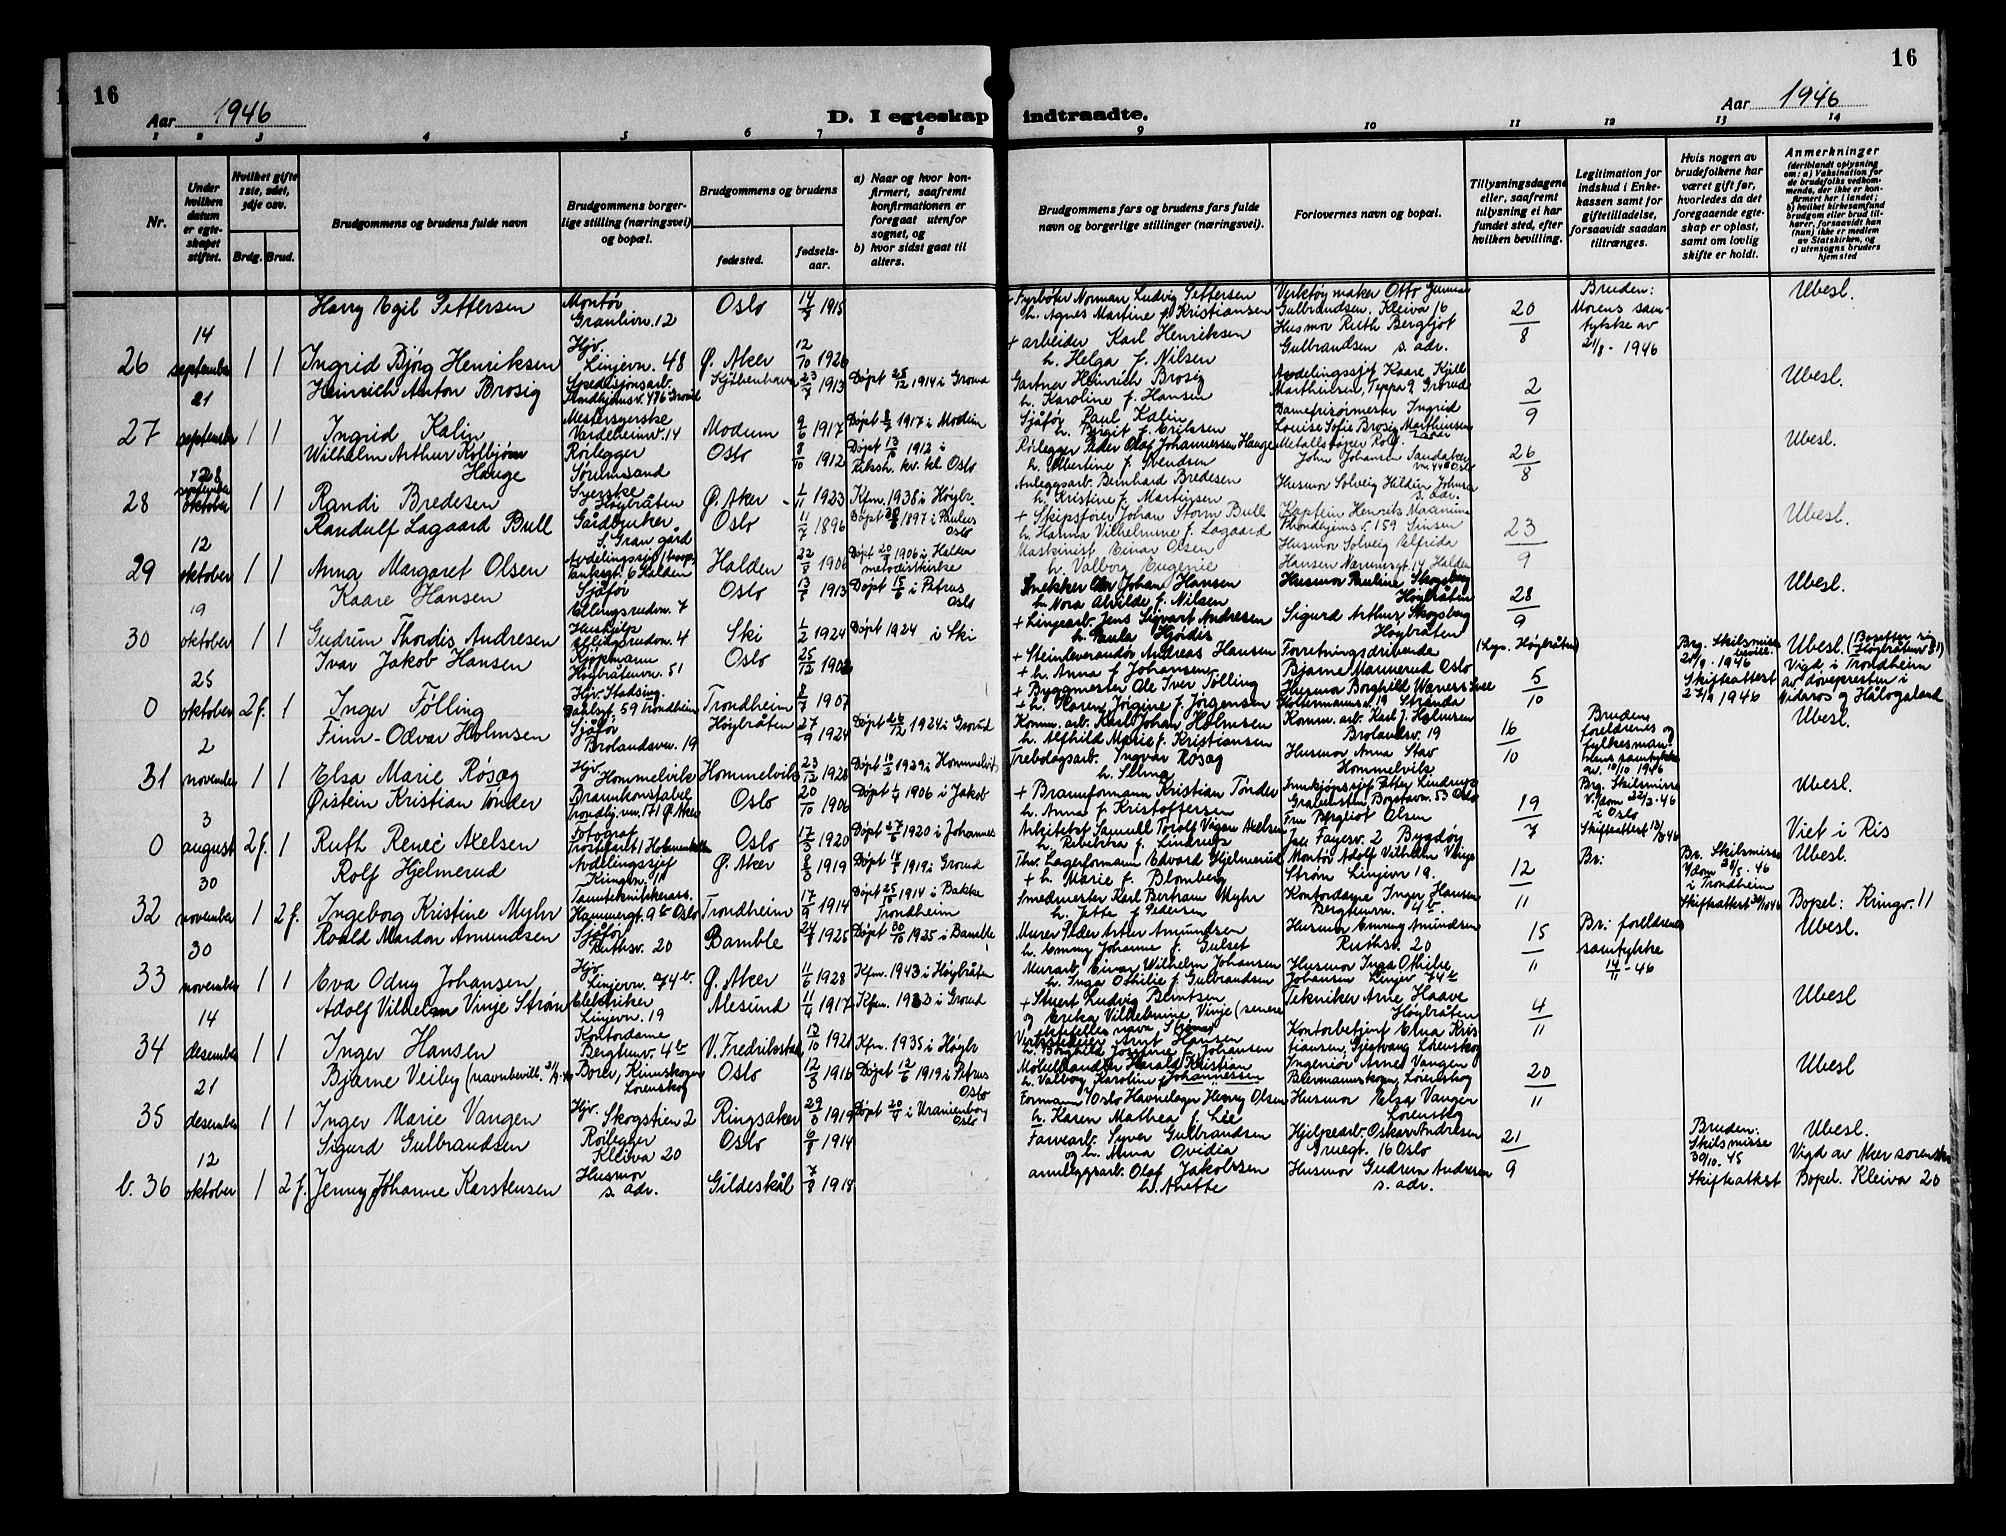 16
Aar 1946
D. I egteskap indtraadte.
Aar 1946
16
1 2 3 4 5 6 7 8 9 10 11 12 13 14
Nr.
Under hvilken datum er egteskapet stiftet.
Hvilket gifte 1ste, 2det, 3dje osv.
Brdg. Brud.
Brudgommens og brudens fulde navn
Brudgommens borgerlige stilling (næringsvei) og bopæl.
Brudgommens og brudens
fødested.
fødselsaar.
a) Naar og hvor konfirmert, saafremt konfirmationen er foregaat utenfor sognet, og
b) hvor sidst gaat til alters.
Brudgommens fars og brudens fars fulde navn og borgerlige stillinger (næringsvei).
Forlovernes navn og bopæl.
Tillysningsdagene eller, saafremt tillysning ei har fundet sted, efter hvilken bevilling.
Legitimation for indskud i Enkekassen samt for giftetilladelse, forsaavidt saadan tiltrænges.
Hvis nogen av brudefolkene har været gift før, hvorledes da det foregaaende egteskap er opløst, samt om lovlig skifte er holdt.
Anmerkninger
(deriblandt oplysning om: a) Vaksination for de brudefolks vedkommende, der ikke er konfirmert her i landet; b) hvilket kirkesamfund brudgom eller brud tilhører, forsaavidt han (hun) ikke er medlem av Statskirken, og c) utensogns bruders hjemsted
26 14 september 1 1
Harry Egil Pettersen Montør Granlivn. 12 Oslo 14/8 1915
Ingrid Bjørg Henriksen Hjv. Linjevn. 48 Ø. Aker 12/10 1926
+ Fyrbøter Norman Ludvig Pettersen
h. Agnes Martine f. Kristiansen
+ arbeider Karl Henriksen
h. Helga f. Nilsen
Verktøymaker Otto Gunnar
Gulbrandsen. Kleiva 16
Husmor Ruth Bergljot
Gulbrandsen s. adr.
20/8
Bruden: Morens samtykke av 21/8 - 1946
Ubesl.
27 21 september 1 1
Heinrich Anton Brosig Spedisjonsarb. 23/7 1913 Døpt 25/12 1914 i Grorud
Ingrid Kalin Vardeheimv. 14 Modum 9/6 1917 i Modum
Gartner Heinrich Brosig
h. Karoline f. Hansen
Sjåfør Paul Kalin
h. Birgit f. Eriksen
Avdelingssjef Kaare Kjell
Marthinsen, Teppa 9 Grorud
Damefrisørmester Ingrid
Louise Sofie Brosig Marthinsen
2/9
Ubesl.
28 28 september oktober 1 1
Wilhelm Arthur Kolbjørn Hauge Rørlegger Sørumsand Oslo 8/10 1912 Døpt 13/10 1912 i Rikssh. kv. kl. Oslo
Randi Bredesen Syerske Høybråten Ø. Aker 1/11 1923 Kfm. 1938 i Høybr.
Rørlegger Peder Olaf Johannessen Hauge
h. Albertine f. Svendsen
Anleggsarb. Bernhard Bredesen
h. Kristine f. Martinsen
John Johansen
Husmor Solveig
s. adr.
26/8
Ubesl.
29 12 oktober 1 1
Randulf Lagaard Bull Gårdbruker S. Gran gård Oslo 11/7 1896 1897 i Paulus Oslo
Anna Margaret Olsen Tanksgt. 6 Halden Halden 22/8 1906 Døpt 1906 i Halden metodistkirke
+ Skipsfører Johan Storm Bull
h. Hanna Vilhelmine f. Lagaard
Maskinist Einar Olsen
h. Valborg Eugenie
Trondhjemsv. 159 Sinsen
Husmor Solveig Elfrida
Hansen 14 Halden
23/9
Ubesl.
30 19 oktober 1 1
Kaare Hansen Sjåfør Ellingsrudvn. 7 Oslo 13/8 1913 Døpt 15/6 i Petrus Oslo
Gudrun Thordis Andresen Hushjelp Ellingsrudvn. 4 Ski 1/2 1924 Døpt 1924 i Ski
Snekker Johan Hansen
h. Nora Alvilde f. Nilsen
+ Linjearb. Jens Sigvart Andresen
h. Paula Hjørdis
Husmor Pauline Skogsberg
Høybråten
Sigurd Arthur Skogsberg
Høybråten
28/9
Ubesl.
0 25 oktober 2f. 1
Ivar Jakob Hansen Kjøpmann Høybråtenvn. 51 Oslo 25/12 1902
Inger Følling 59 Trondheim Trondheim 8/7 1907
+ Steinleverandør Andreas Hansen
+ h. Anna f. Johansen
+ Byggmester Ole Iver Følling
+ h. Karen Jørgine f. Jørgensen
Forretningsdrivende
Bjarne Mannerud Oslo
Husmor Borghild
Strinda
(Lys. Høybråten) 5/10
Brg. Skilsmisse bevill. 1946 Skifteattest 1946
Ubesl. Vigd i Trondheim av døvepresten i Nidaros og Hålogaland
31 2 november 1 1
Finn-Odvar Holmsen Sjåfør Brolandsvn. 19 Høybråten 27/9 1924 1924 i Grorud
Elsa Marie Røsæg Hjv. Hommelvik Hommelvik 23/12 1928 Døpt 10/2 1929 i Hommelvik
Komm. arb. Karl Johan Holmsen
h. Alfhild Marie f. Kristiansen
Trebolagsarb. Ingvar Røsæg
h. Selma
Komm. arb. Karl J. Holmsen
Brolandsv. 19
Husmor Anna Stav
Hommelvik
16/10
Brudens foreldrenes og fylkesmannens samtykke av 10/10 1946
Ubesl.
0 3 august 2f. 1
Øistein Kristian Tønder Brannkonstabel Trondhj. vn. 171 Ø. Aker Oslo 20/10 1906 1906 i Jakob
Ruth Reneé Axelsen Fotograf Oslo 17/3 1920 1920 i Johannes
+ Brannformann Kristian Tønder
h. Anna f. Kristoffersen
Arkitekt Samuel Torolf Axelsen
h. Rebekka f. Lindreas
Fru Bergliot Olsen
2 Bygdøy
19/7
Brg. Skilsmisse v/dom i Oslo Skifteattest
Ubesl.
Viet i Ris
32 30 november 1 2f.
Rolf Hjelmerud Avdelingssjef Ringvn. 11 Ø. Aker 1919 i Grorud
Ingeborg Kristine Myhr Hammersgt. 9b Oslo Trondheim 17/9 1914 Døpt 25/10 1914 i Bakke Trondheim
Thv. Lagerformann Edvard Hjelmerud
+ h. Marie f. Blomberg
Smedmester Karl Bertram Myhr
h. Jette f. Pedersen
Montør Adolf Vilhelm Vinje
Strøm Linjevn 19.
Kontordame Inger Hansen
Bergtunvn. 4b.
12/11
Br:
Br. Skilsmisse v/dom 46 i Trondheim Skifteattest
Ubesl.
Bopel: Ringv. 11
33 30 november 1 1
Roald Mardon Amundsen Sjåfør Ruthsv. 20 Bamble 24/8 1925 Døpt 30/10 1925 i Bamble
Eva Odny Johansen Hjv. Linjevn. 74b. Ø. Aker 11/6 1928 Kfm. 1943 i Høybråten
Murer Peder Artur Amundsen
h. Emmy Johanne f. Gulset
Murarb. Einar Wilhelm Johansen
h. Inga Othilie f. Gulbrandsen
Husmor Emmy Amundsen
Ruthsv. 20
Husmor Inga Othilie
Johansen Linjev 74b
15/11
Br: foreldrenes samtykke 14/11 - 46
Ubesl.
34 14 desember 1 1
Adolf Vilhelm Vinje Strøm Elektriker Linjevn. 19 Ålesund 11/4 1917 Kfm. 1932 i Grorud
Inger Hansen Kontordame Bergtunv. 4b V. Fredrikstad 13/10 1921 Kfm. 1935 i Høybr
+ Stuert Ludvig Berntsen
og Erika Vilhelmine Vinje (senere
ektefelles navn, Strøm)
Arnt Hansen
h. Borghild Josefine f. Johansen
Tekniker Arne Haave
Høybråten
Kontorbetjent Elna Kristiansen, Gjestvang Lørenskog
4/11
Ubesl
35 21 desember 1 1
Bjarne Veiby (navnbevill. Lørenskog Oslo 12/3 1916 Døpt 12/6 1919 i Petrus Oslo
Inger Marie Vangen Hjv. Skogstien 2 Ringsaker 29/3 1919 Døpt 20/4 i Uranienborg Oslo
Møbelhandler Harald Kristian
h. Valborg Karoline f. Johannessen
Formann v/Oslo Havnelager Henry Olsen
h. Karen Mathea f. Lie
Ingeniør Arne Vangen
Lørenskog
Husmor Elsa Vangen
Lørenskog
20/11
Ubesl
b. 36 12 oktober 1 2f.
Sigurd Gulbrandsen Rørlegger Kleiva 20 Oslo 6/8 1914
Jenny Johanne Karstensen Husmor s. adr. Gildeskål 7/8 1918
Farvearb. Syver Gulbrandsen
og h. Anna Ovidia
anleggsarb. Olaf Jakobsen
h. Anette
Hjelpearb. Oskar Andresen
Gruegt. 16 Oslo
Husmor Gudrun Andresen
s. adr.
21/9
Bruden: Skilsmisse 30/10. 45 Skifteattest
Ubesl.
Vigd av Aker sorenskr
Bopel. Kleiva 20